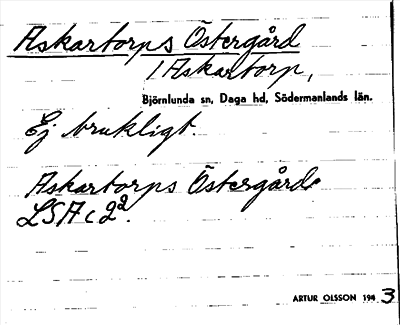 Askartorps Östergård
/ Askartorp,
Björnlunda sn, Daga hd, Södermanlands län.
Ej brukligt.
Askartorps Östergård
LSA c 2²
ARTUR OLSSON 1943